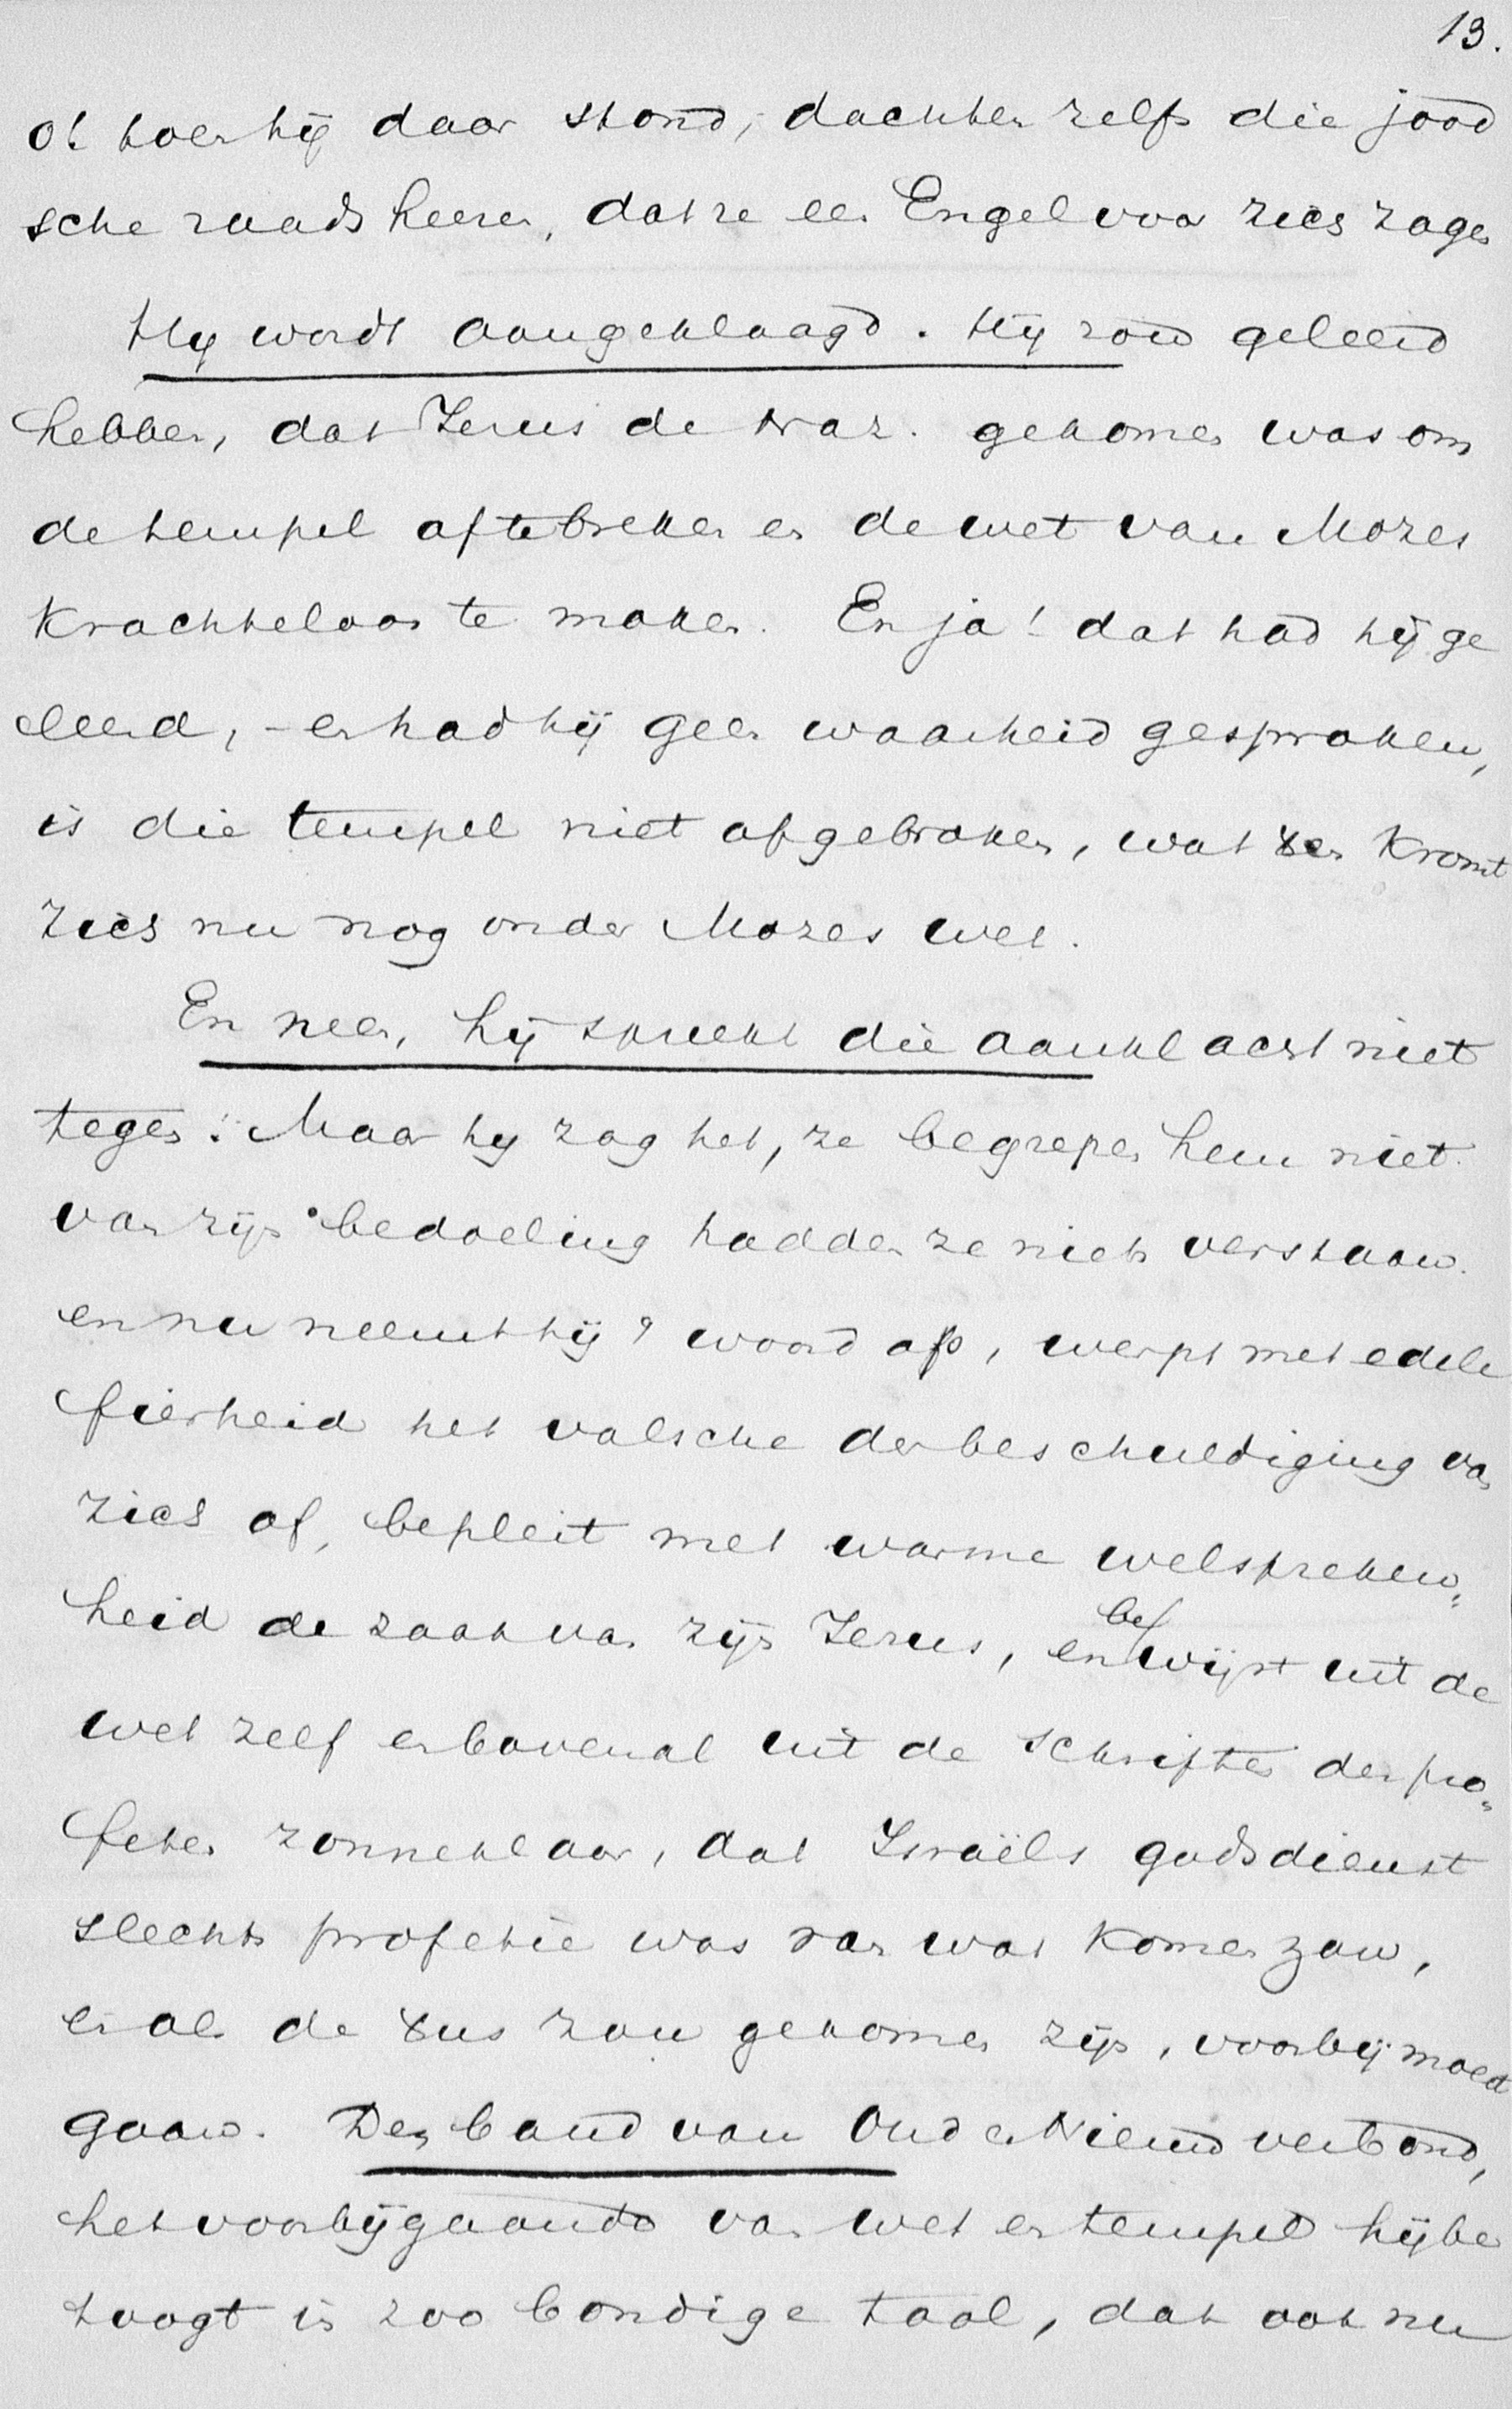 13.
ok toen hij daar stond, dachten zelfs die jood
sche raadsheeren, dat ze een Engel voor zich zagen
Hij wordt aangeklaagd. Hij zou geleerd
hebben, dat Jezus de Naz. gekomen was om
de tempel aftebreken en de wet van Mozes
krachteloos te maken. En ja! dat had hij ge
leerd, - en had hij geen waarheid gesproken,
is die tempel niet afgebroken, wat Xen kromt
zich nu nog onder Mozes wet.
En neen, hij spreekt die aanklacht niet
tegen! Maar hij zag het, ze begrepen hem niet.
van zijn bedoeling hadden ze niets verstaan.
en nu neemt hij 't woord op, werpt met edele
fierheid het valsche der beschuldiging van
zich af, bepleit met warme welspreken-
heid de zaak van zijn Jezus, en bewijst uit de
wet zelf en bovenal uit de schriften der pro-
feten zonneklaar, dat Israëls godsdienst
slechts profetie was van wat komen zou,
en als de Xus zou gekomen zijn, voorbij moest
gaan. Den band van Oud en Nieuw verbond,
het voorbijgaande van wet en tempel hij be
toogt in zoo bondige taal, dat ook nu